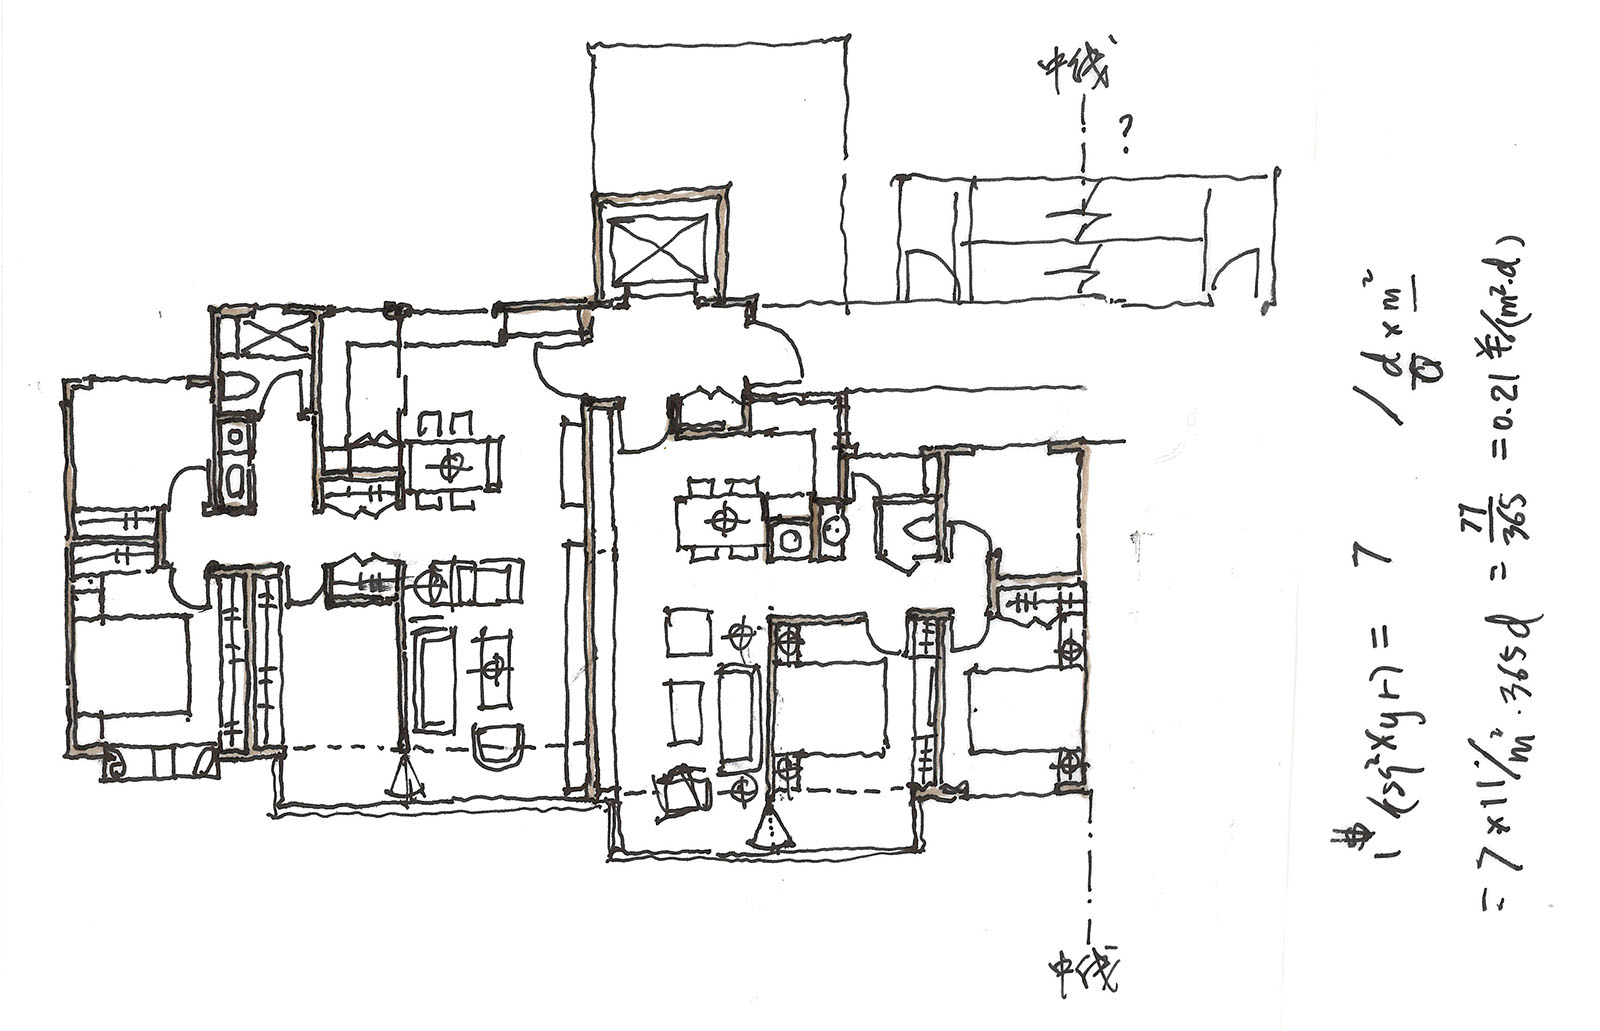 中线
?
1 $/(sq²xyr) = 7 / d × m²
= 7×11/m²·365d = 77/365 = 0.21¥/(m²·d)
中线